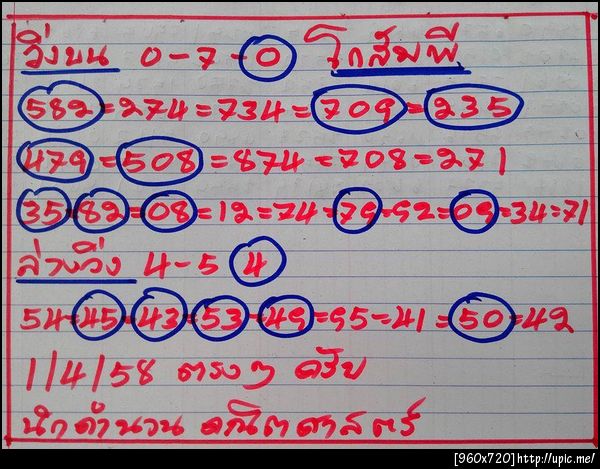 วิ่งบน 0-7-0 โกสัมพี
582=274=734=709=235
479=508=874=708=271
35=82=08=12=74=79=92=09=34=71
ล่างวิ่ง 4-5 4
54-45=43=53-49=95-41=50=42
1/4/58 ตรงๆ ครับ
นักคำนวน คณิตศาสตร์
[960x720]http://upic.me/